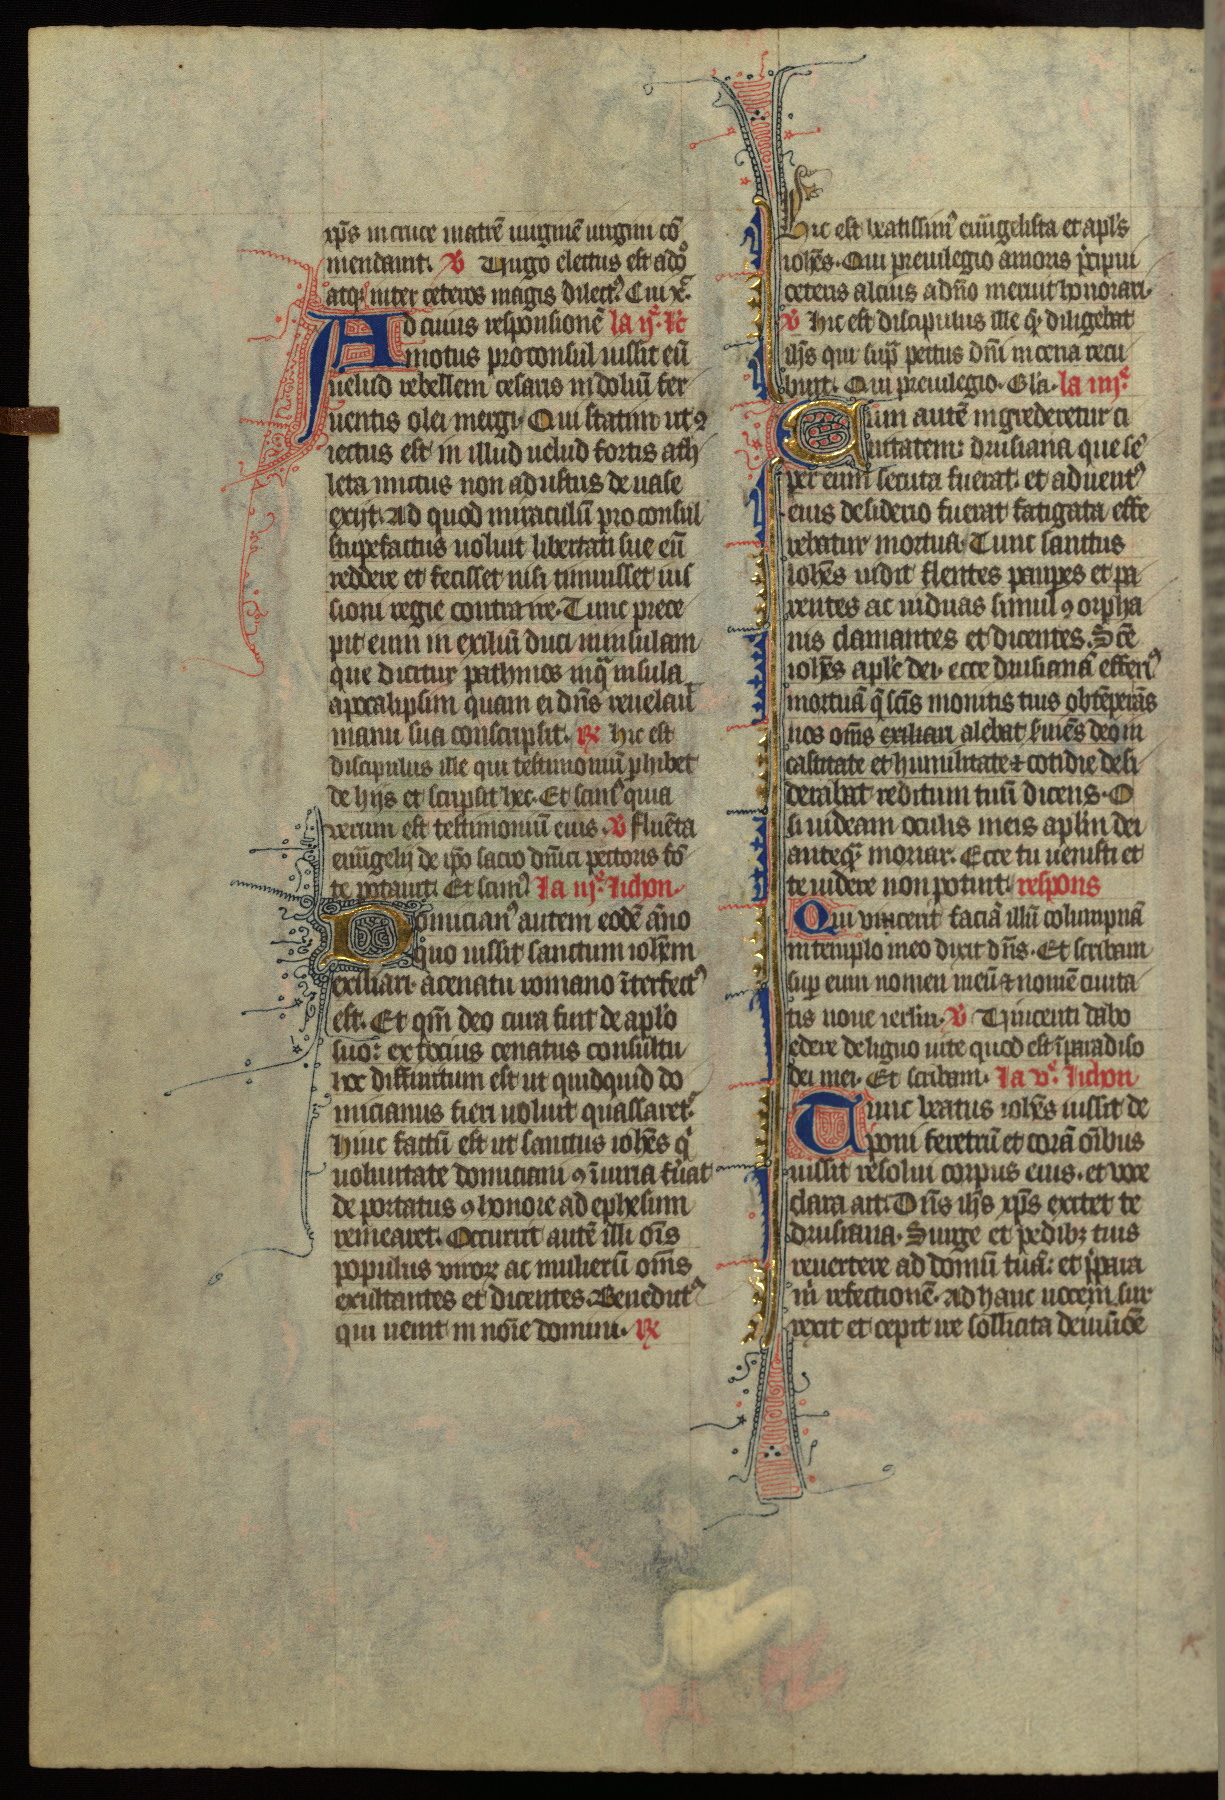 xp̄s in cruce matrē uirginē uirgini cō
mendauit. V̄ Virgo electus est a dño
atq; inter ceteros magis dilect⁹ Cui x̄.
Ad cuius responsionē la ijᵃ. R
motus proconsul iussit eū
uelud rebellem cesaris in doliū fer
uentis olei mergi. Qui statim ut ꝯ
iectus est in illud uelud fortis ath
leta unctus non adustus de uase
exijt. Ad quod miraculū proconsul
stupefactus uoluit libertati sue eū
reddere et fecisset nisi timuisset ius
sioni regie contra ire. Tunc prece
pit eum in exiliū duci in insulam
que dicitur pathmos in q̄ insula
apocalipsim quam ei dn̄s reuelauit
manu sua conscripsit. R Hic est
discipulus ille qui testimoniū phibet
de hijs et scripsit hec. Et scim⁹ quia
verum est testimoniū eius. V̄ fluēta
euūgelij de ip̄o sacro dn̄ici pectoris fō
te potauit. Et scim⁹ la iijᵃ. lichon
Domician⁹ autem eodē āno
quo iussit sanctum iohēm
exiliari. a cenatu romano īterfect⁹
est. Et qm̄ deo cura fuit de apl̄o
suo: ex tocius cenatus consultu
hoc diffinitum est ut quidquid do
micianus fieri uoluit quassaret⁹.
Hinc factū est ut sanctus iohēs q̄
uoluntate domiciani ꝯ īiuria fūat
de portatus ꝯ honore ad ephesum
remearet. Occurrit autē illi om̄is
populus viroꝝ ac mulierū om̄s
exultantes et dicentes. Benedict⁹
qui uenit in noīe domini. R
Hic est beatissim⁹ euūgelista et apl̄s
iohēs. Qui preuilegio amoris p̄cipui
ceteris alcius a dn̄o meruit honorari.
V̄ Hic est discipulus ille q̄ diligebat
ih̄s qui sup̄ pectus dn̄i in cena recu
buit. Qui preuilegio. Gl̄a. la iiijᵃ
Cum autē ingrederetur ci
uitatem: drusiana que se
per eum secuta fuerat. et aduent⁹
eius desiderio fuerat fatigata effe
rebatur mortua. Tunc sanctus
iohēs uidit flentes paupes et pa
rentes ac uiduas simul ꝯ orpha
nis clamantes et dicentes. Scē
iohēs apl̄e dei. ecce drusianā efferim⁹
mortuā q̄ scīs monitis tuis obtēperās
nos om̄s exiliari alebat ūiēs deo in
castitate et humilitate ⁊ cotidie desi
derabat reditum tuū dicens. O
si uideam oculis meis apl̄m dei
anteq̄ moriar. Ecce tu uenisti et
te uidere non potuit. respons
Qui vincerit faciā illū columpnā
in templo meo dixit dn̄s. Et scribam
sup eum nomen meū ⁊ nomē ciuita
tis noue ierl̄m. V̄ Vincenti dabo
edere de ligno uite quod est ī paradiso
dei mei. Et scribam. la vᵃ. lichon
Tunc beatus iohēs iussit de
poni feretrū et corā om̄ibus
iussit resolui corpus eius. et voce
clara ait. Dn̄s ih̄s xp̄s excitet te
drusiana. Surge et pedibꝫ tuis
reuertere ad domū tuā: et p̄para
m̄ refectionē. Ad hanc uocem sur
rexit et cepit ire sollicita de iussiōe